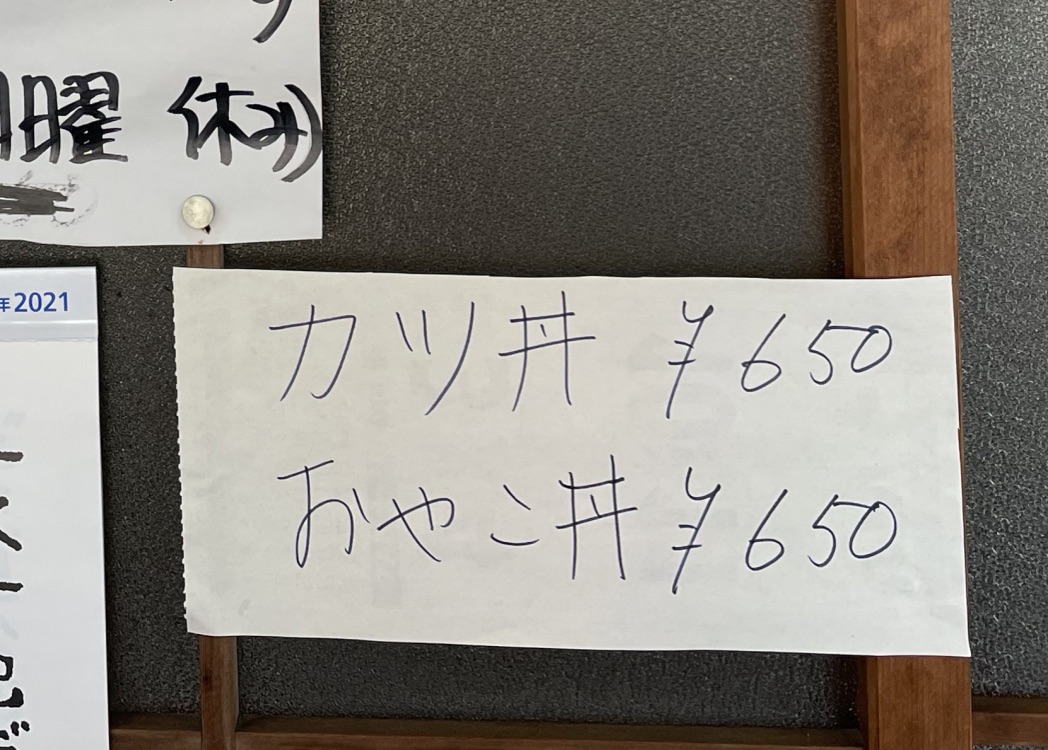 曜 休み)
年2021
カツ丼 ¥650
おやこ丼 ¥650